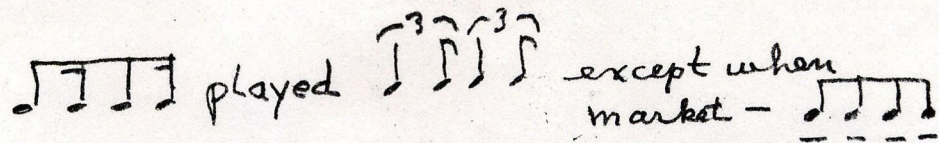 played 3 3 except when
market –